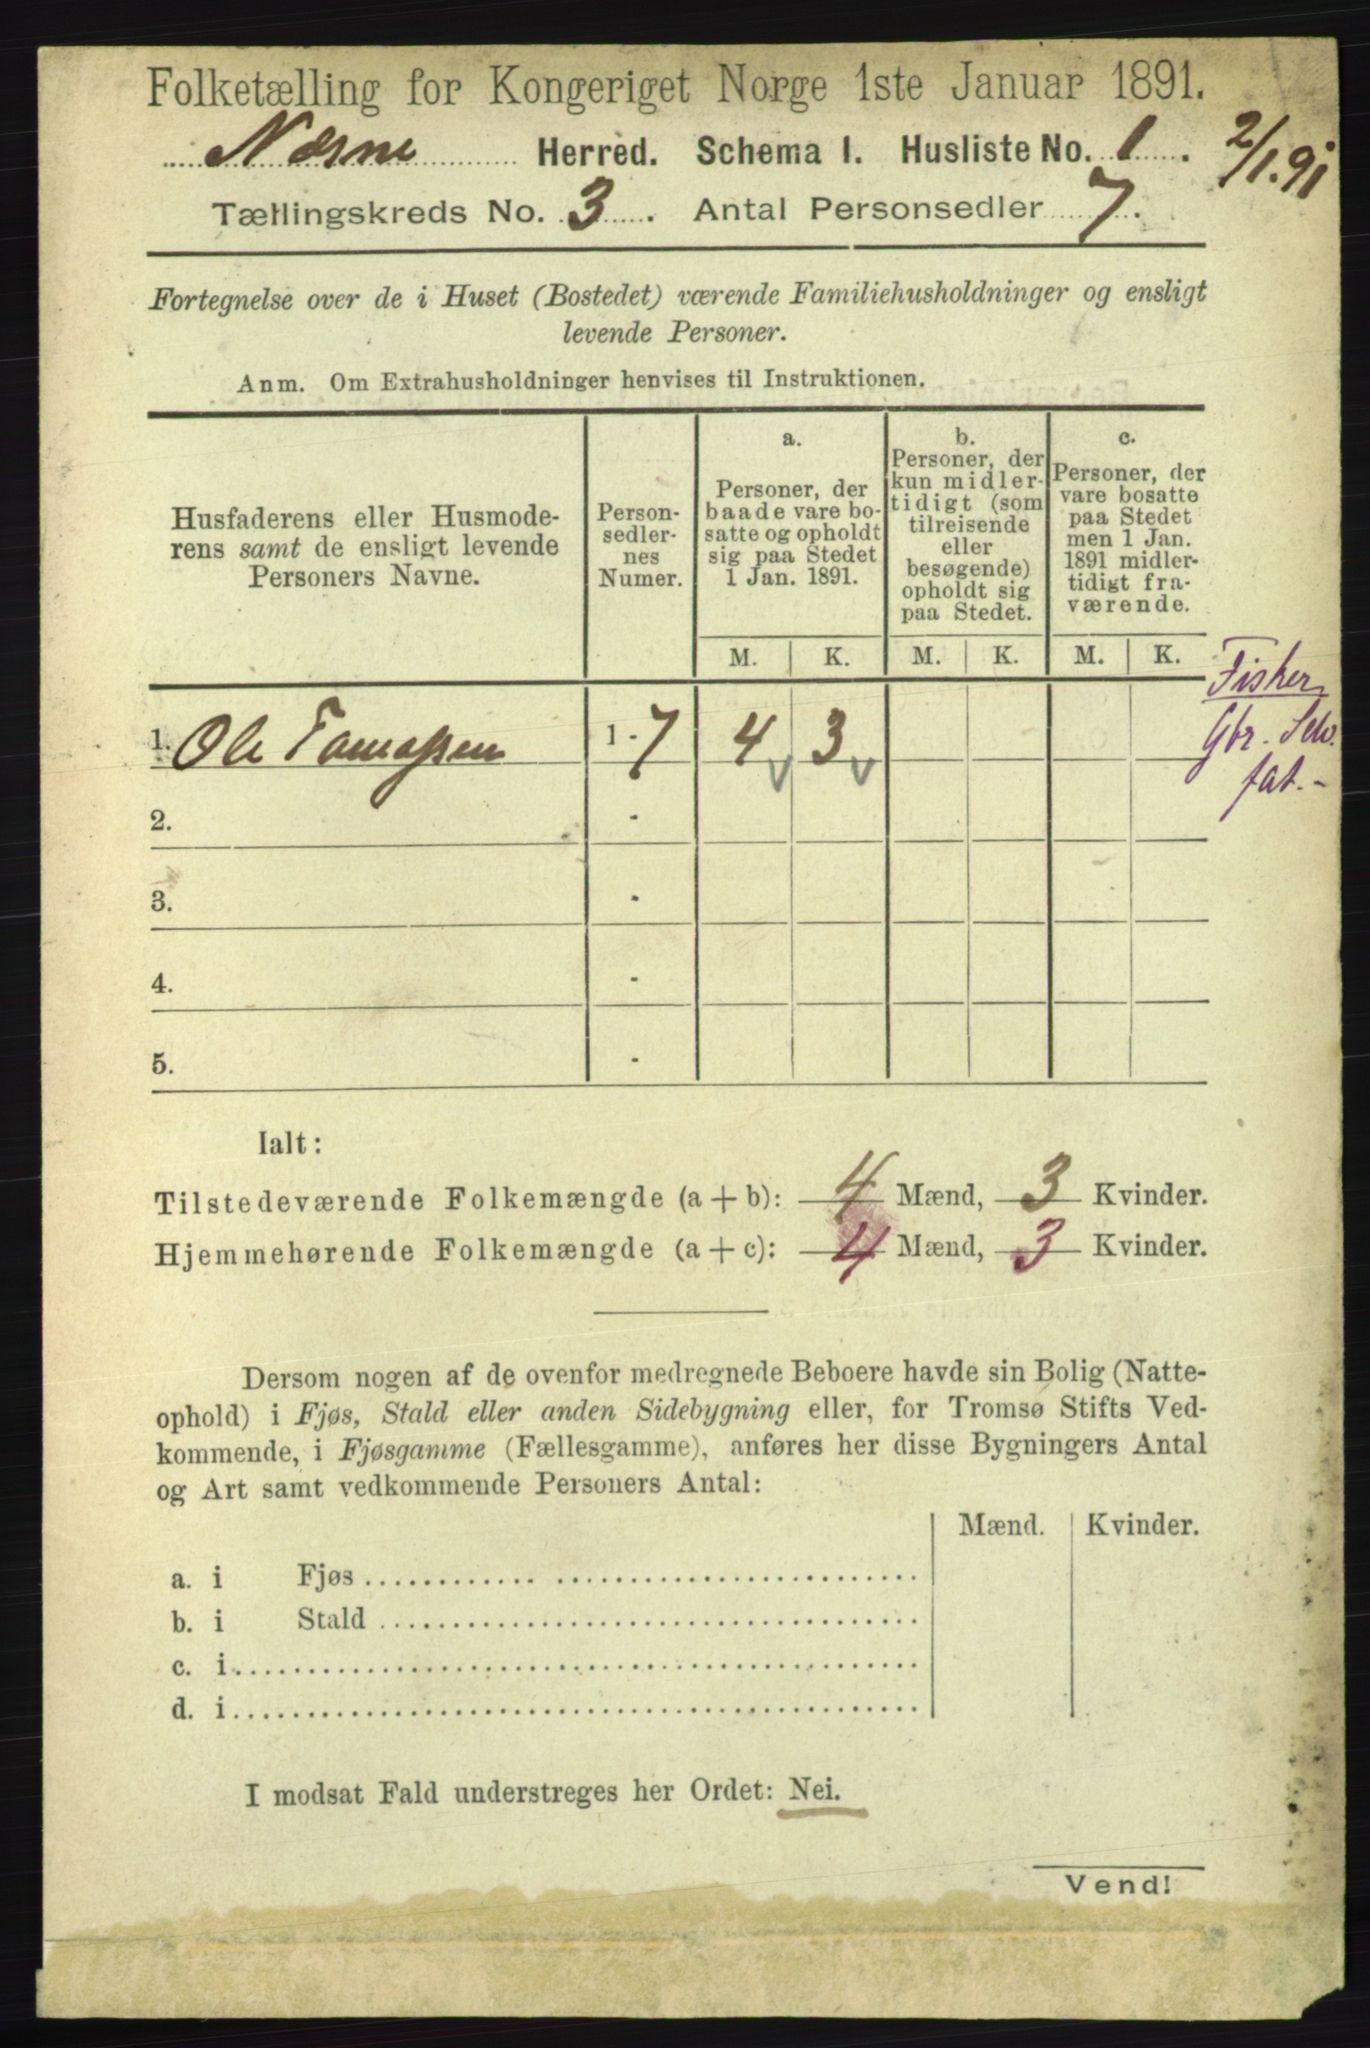 Folketælling for Kongeriget Norge 1ste Januar 1891.
Nærne Herred. Schema I. Husliste No. 1.
2/1.91
Tællingskreds No. 3. Antal Personsedler 7.
Fortegnelse over de i Huset (Bostedet) værende Familiehusholdninger og ensligt
levende Personer.
Anm. Om Extrahusholdninger henvises til Instruktionen.
Husfaderens eller Husmode-
rens samt de ensligt levende
Personers Navne.
Person-
sedler-
nes
Numer.
a.
Personer, der
baade vare bo-
satte og opholdt
sig paa Stedet
1 Jan. 1891.
b.
Personer, der
kun midler-
tidigt (som
tilreisende
eller
besøgende)
opholdt sig
paa Stedet.
c.
Personer, der
vare bosatte
paa Stedet
men 1 Jan.
1891 midler-
tidigt fra-
værende.
M. K. M. K. M. K.
1. Ole Tomassen 1 - 7 4 3
Fisker
Gbr. Selv.
fat. -
2. -
3. -
4. -
5. -
Ialt:
Tilstedeværende Folkemængde (a + b): 4 Mænd, 3 Kvinder.
Hjemmehørende Folkemængde (a + c): 4 Mænd, 3 Kvinder.
Dersom nogen af de ovenfor medregnede Beboere havde sin Bolig (Natte-
ophold) i Fjøs, Stald eller anden Sidebygning eller, for Tromsø Stifts Ved-
kommende, i Fjøsgamme (Fællesgamme), anføres her disse Bygningers Antal
og Art samt vedkommende Personers Antal:
Mænd. Kvinder.
a. i Fjøs
b. i Stald
c. i
d. i
I modsat Fald understreges her Ordet: Nei.
Vend!